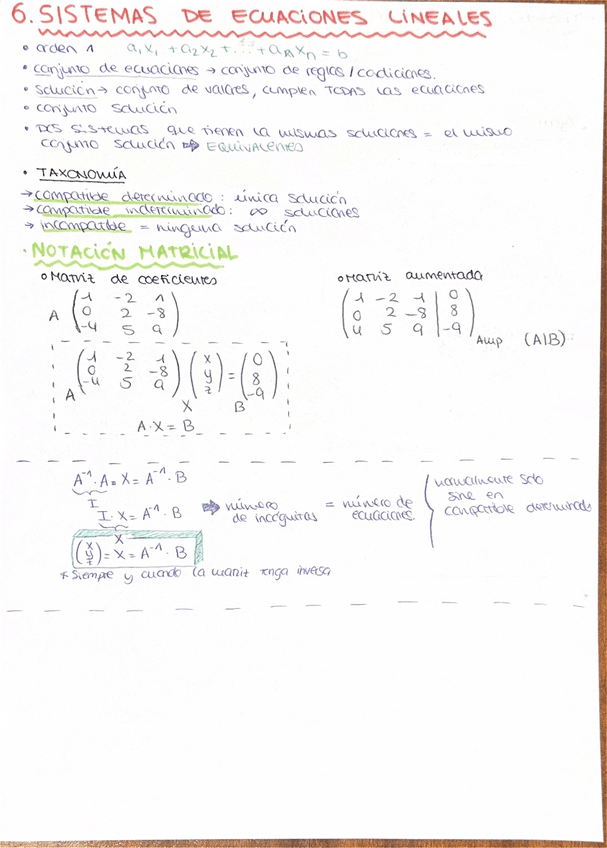 6. SISTEMAS DE ECUACIONES LINEALES
• orden 1 a₁x₁ + a₂x₂ + ... + aₙxₙ = b
• conjunto de ecuaciones → conjunto de reglas / condiciones.
• solución → conjunto de valores, cumplen TODAS las ecuaciones
• conjunto solución
• Dos sistemas que tienen la mismas soluciones = el mismo
conjunto solución ⇒ EQUIVALENTES
• TAXONOMÍA
→ compatible determinado : única solución
→ compatible indeterminado : ∞ soluciones
→ incompatible = ninguna solución
· NOTACIÓN MATRICIAL
o Matriz de coeficientes
A
1 -2 1
0 2 -8
-4 5 9
o Matriz aumentada
1 -2 1 | 0
0 2 -8 | 8
4 5 9 | -9
Amp (A|B)
A
1 -2 1
0 2 -8
-4 5 9
x
y
z
=
0
8
-9
X B
A·X = B
A⁻¹·A·X = A⁻¹·B
I
I·X = A⁻¹·B
X
(x y z) = X = A⁻¹·B
* Siempre y cuando la matriz tenga inversa
⇒ número de incógnitas = número de ecuaciones.
normalmente solo
sirve en
compatible determinado